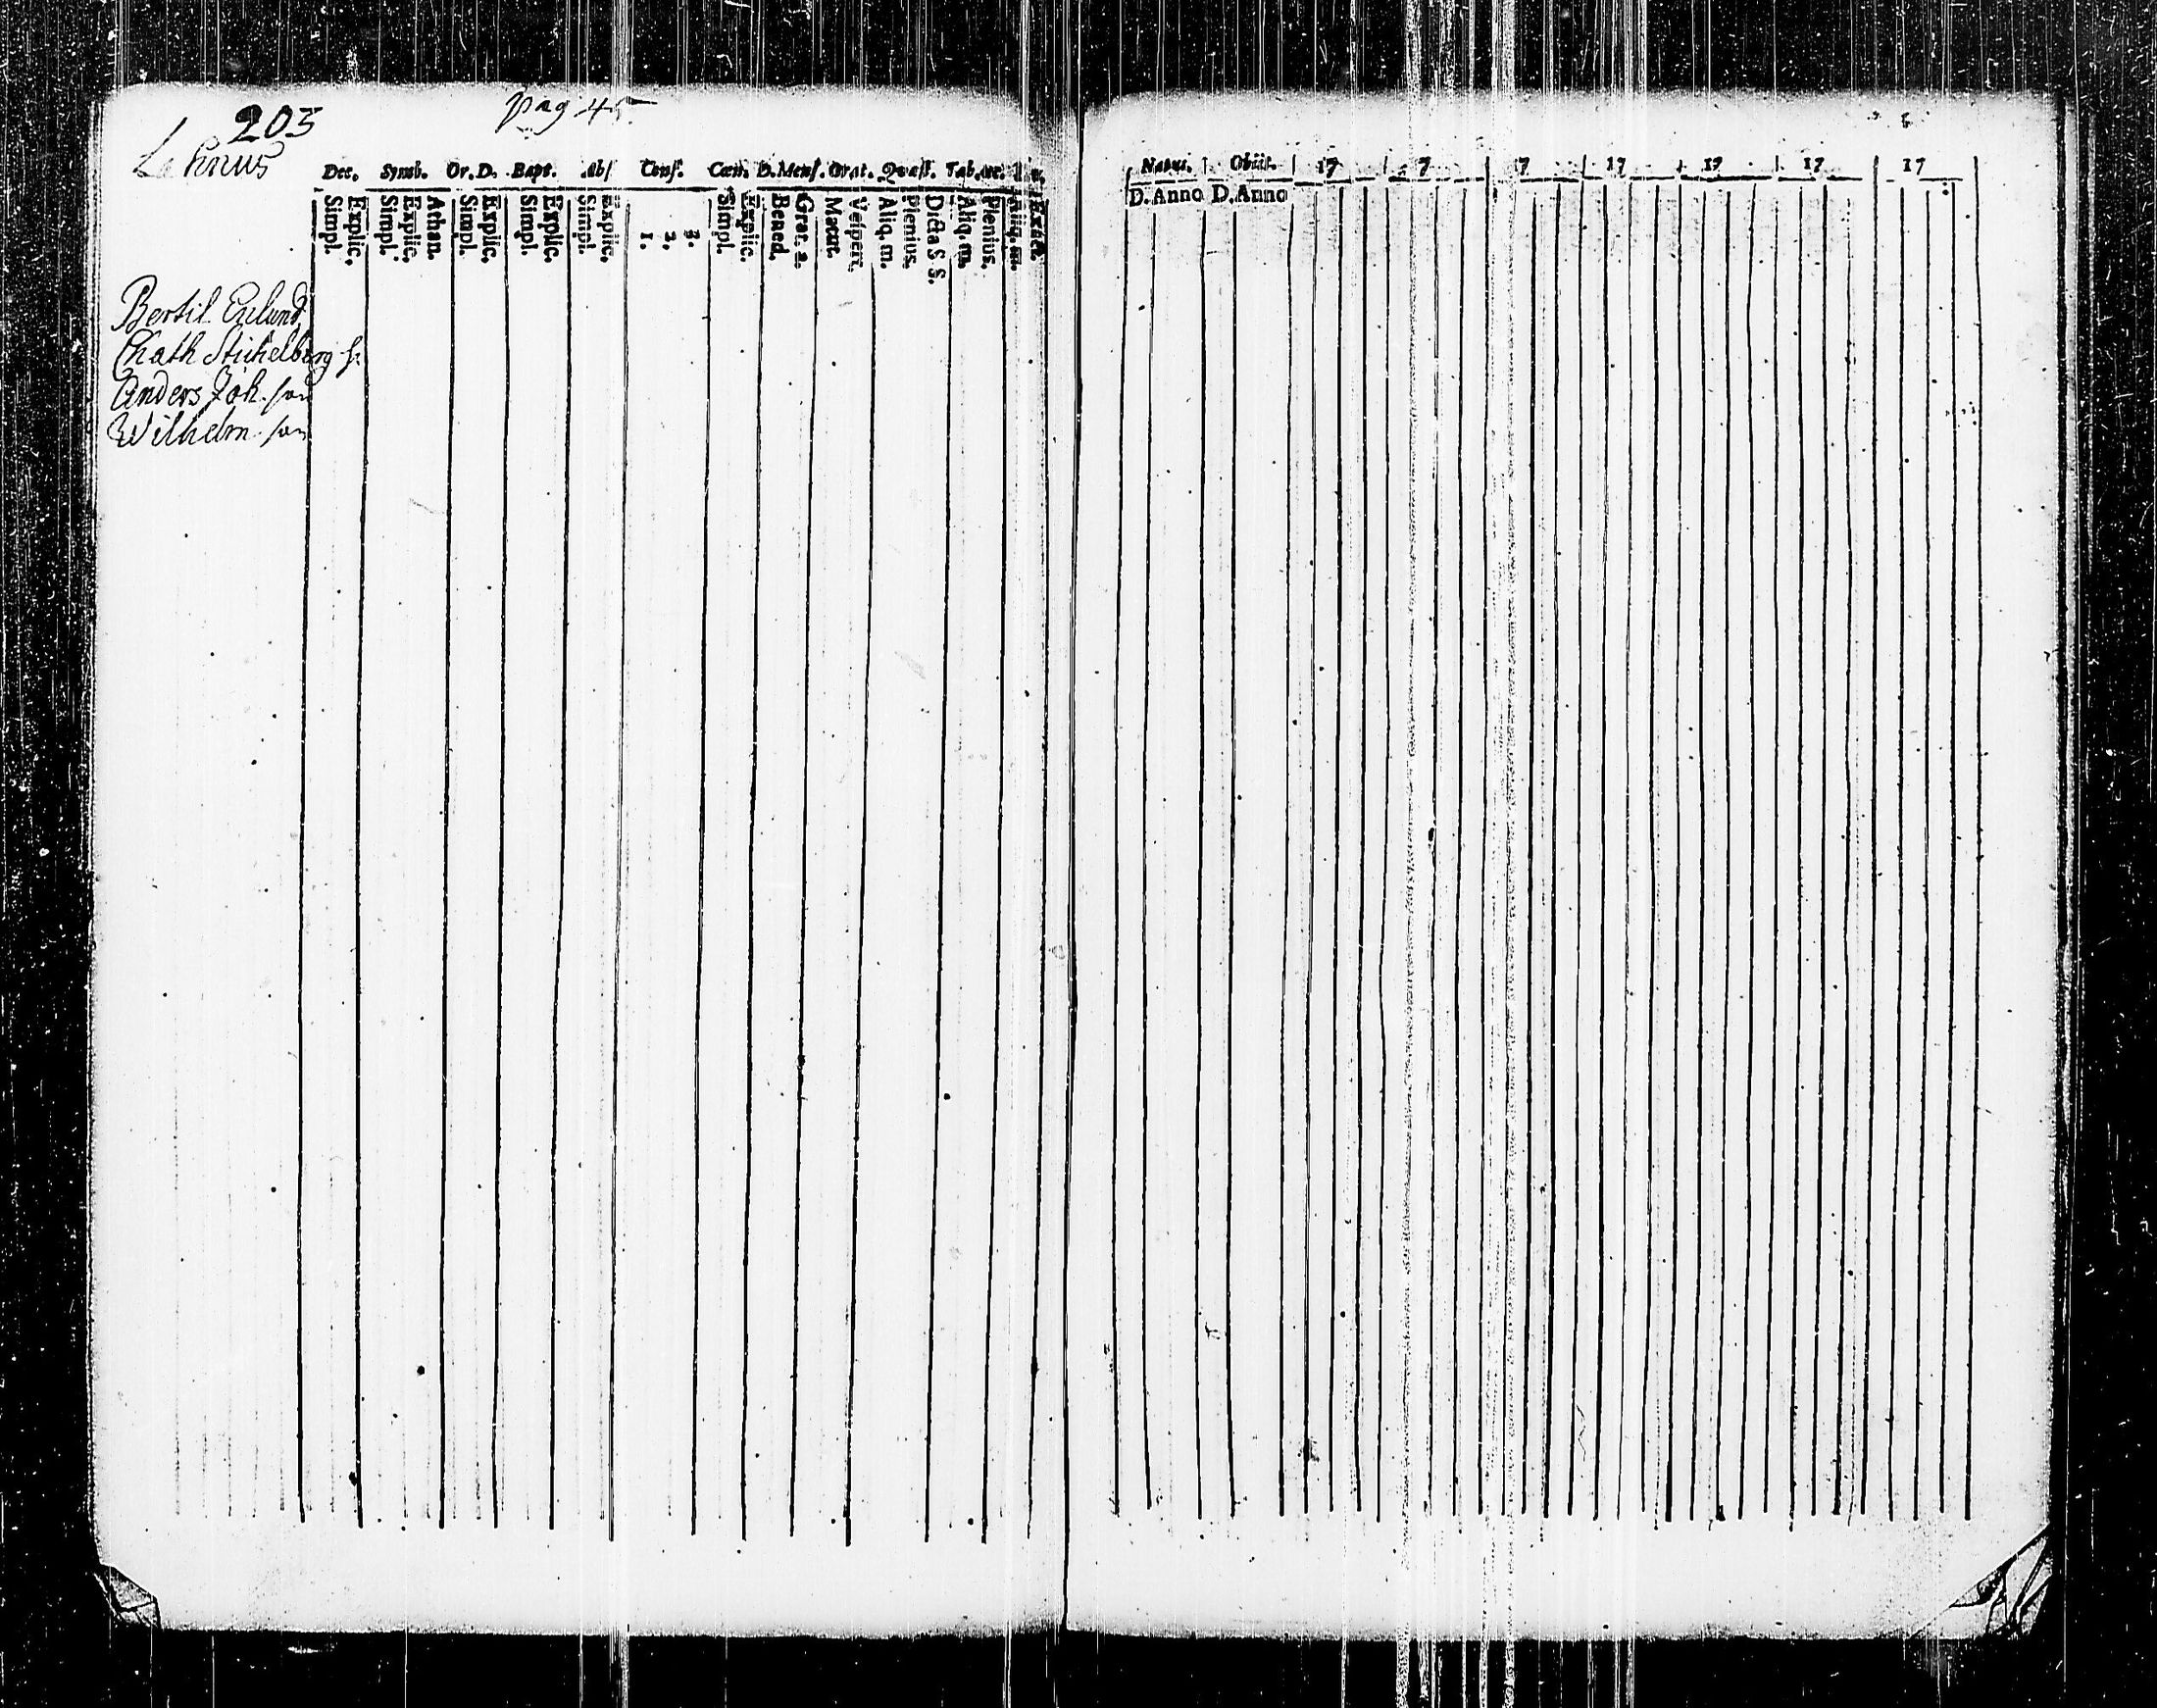 203 pag 45
Dec. Symb. Or. D. Bapt. Abs Conf. Cœn. D. Mens. Orat. Quæst. Tab. œc.
Simpl. Explic. Simpl. Explic. Athan. Simpl. Explic. Simpl. Explic. Simpl. Explic. 1. 2. 3. Simpl. Explic. Bened. Grat. a. Matut. Vespert. Aliq. m. Plenius. Dicta S S. Aliq. m. Plenius. Aliq. m. Exact.
Bertil Enlund
Chath Stichelberg h.
Anders Joh. son
Wilhelm son
Natus. Obiit. 17 7 17 17 17 17 17
D. Anno D. Anno